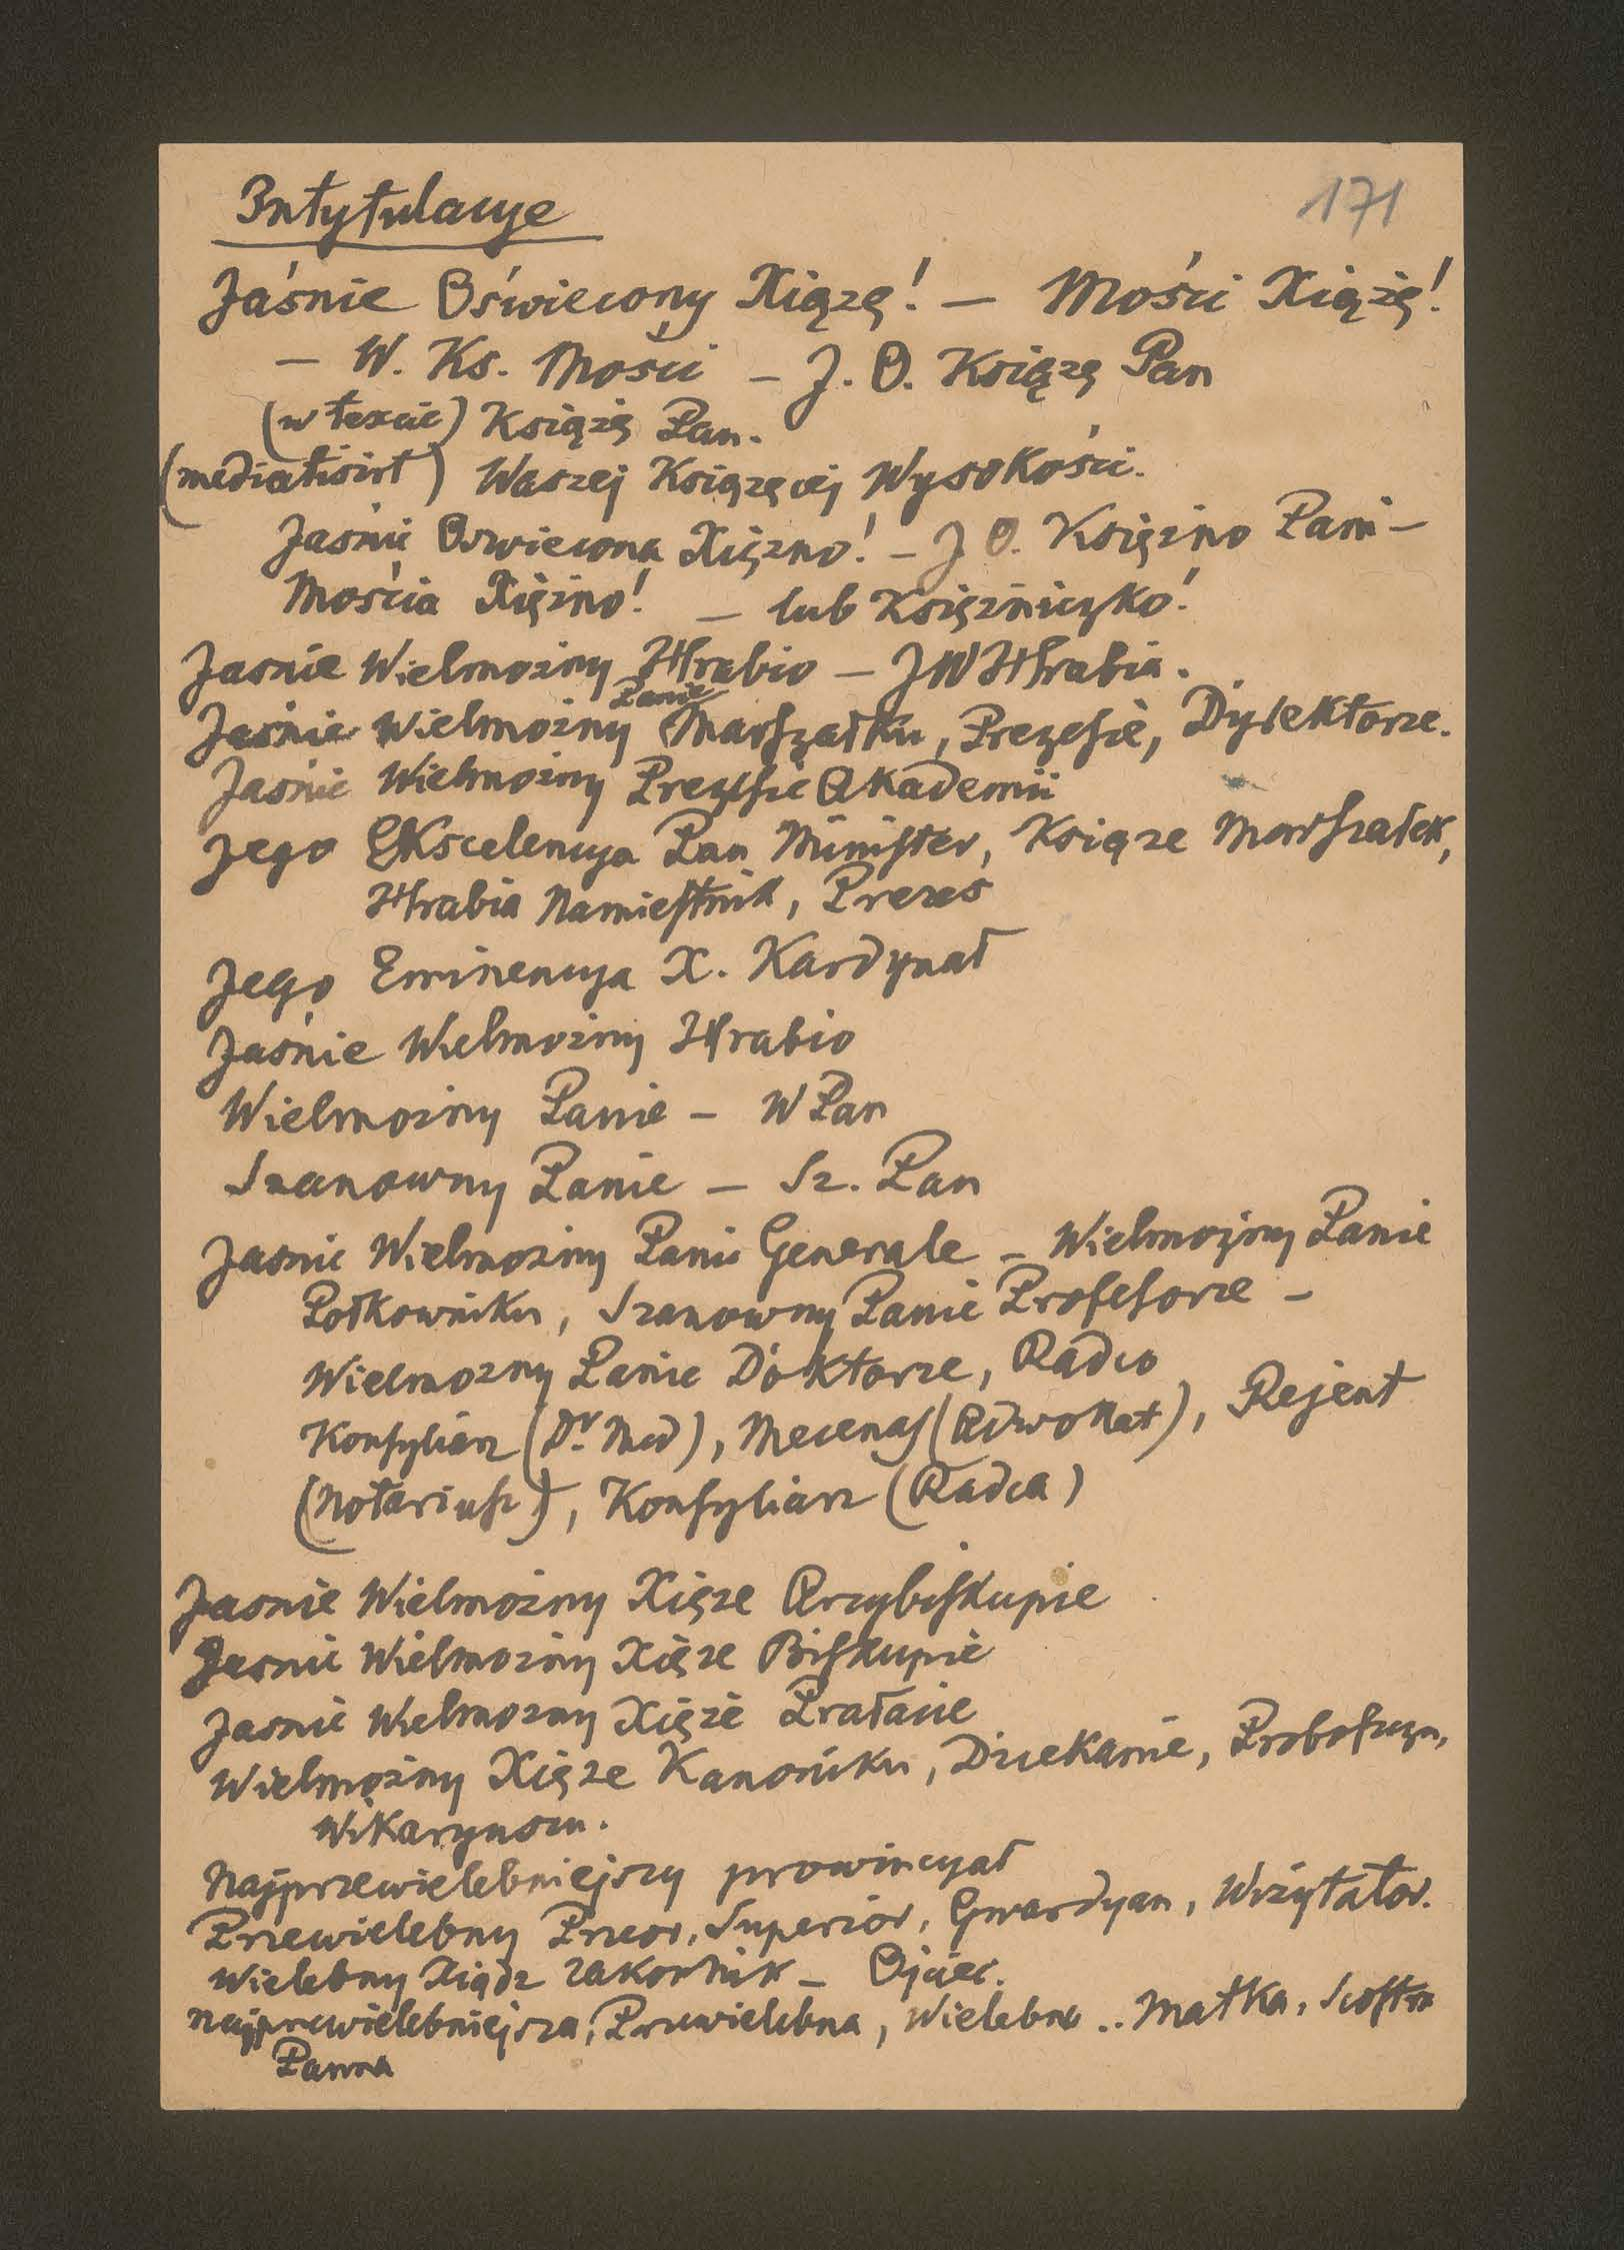 Intytulacye
171
Jaśnie Oświecony Xiążę! — Mości Xiążę!
— W. Ks. Mości — J. O. Książę Pan
(w texcie) Książę Pan.
(mediatisirt) Waszej Książęcej Wysokości.
Jaśnie Oświecona Xiężno! — J O. Księżno Pani —
Mościa Xiężno! — lub Księżniczko!
Jasnie Wielmożny Hrabio — JW Hrabia.
Panie
Jaśnie Wielmożny Marszałku, Prezesie, Dyrektorze.
Jaśnie Wielmożny Prezesie Akademii
Jego Ekscelencya Pan Minister, Książe Marszałek,
Hrabia Namiestnik, Prezes
Jego Eminencya X. Kardynał
Jaśnie Wielmożny Hrabio
Wielmożny Panie — W Pan
Szanowny Panie — Sz. Pan
Jasnie Wielmożny Panie Generale — Wielmożny Panie
Połkowniku, Szanowny Panie Profesorze —
Wielmożny Panie Doktorze, Radco
Konsyliarz (Dr. Med), Mecenas (Adwokat), Rejent
(Notariusz), Konsyliarz (Radca)
Jasnie Wielmożny Xięże Arcybiskupie
Jasnie Wielmożny Xięże Biskupie
Jasnie Wielmożny Xięże Prałacie
Wielmożny Xięże Kanoniku, Dziekanie, Proboszczu,
Wikaryuszu.
Najprzewielebniejszy prowincyał
Przewielebny Przeor, Superior, Gwardyan, Wizytator.
Wielebny Xiądz zakonnik — Ojciec.
Najprzewielebniejsza, Przewielebna, Wielebna .. Matka, Siostra
Panna